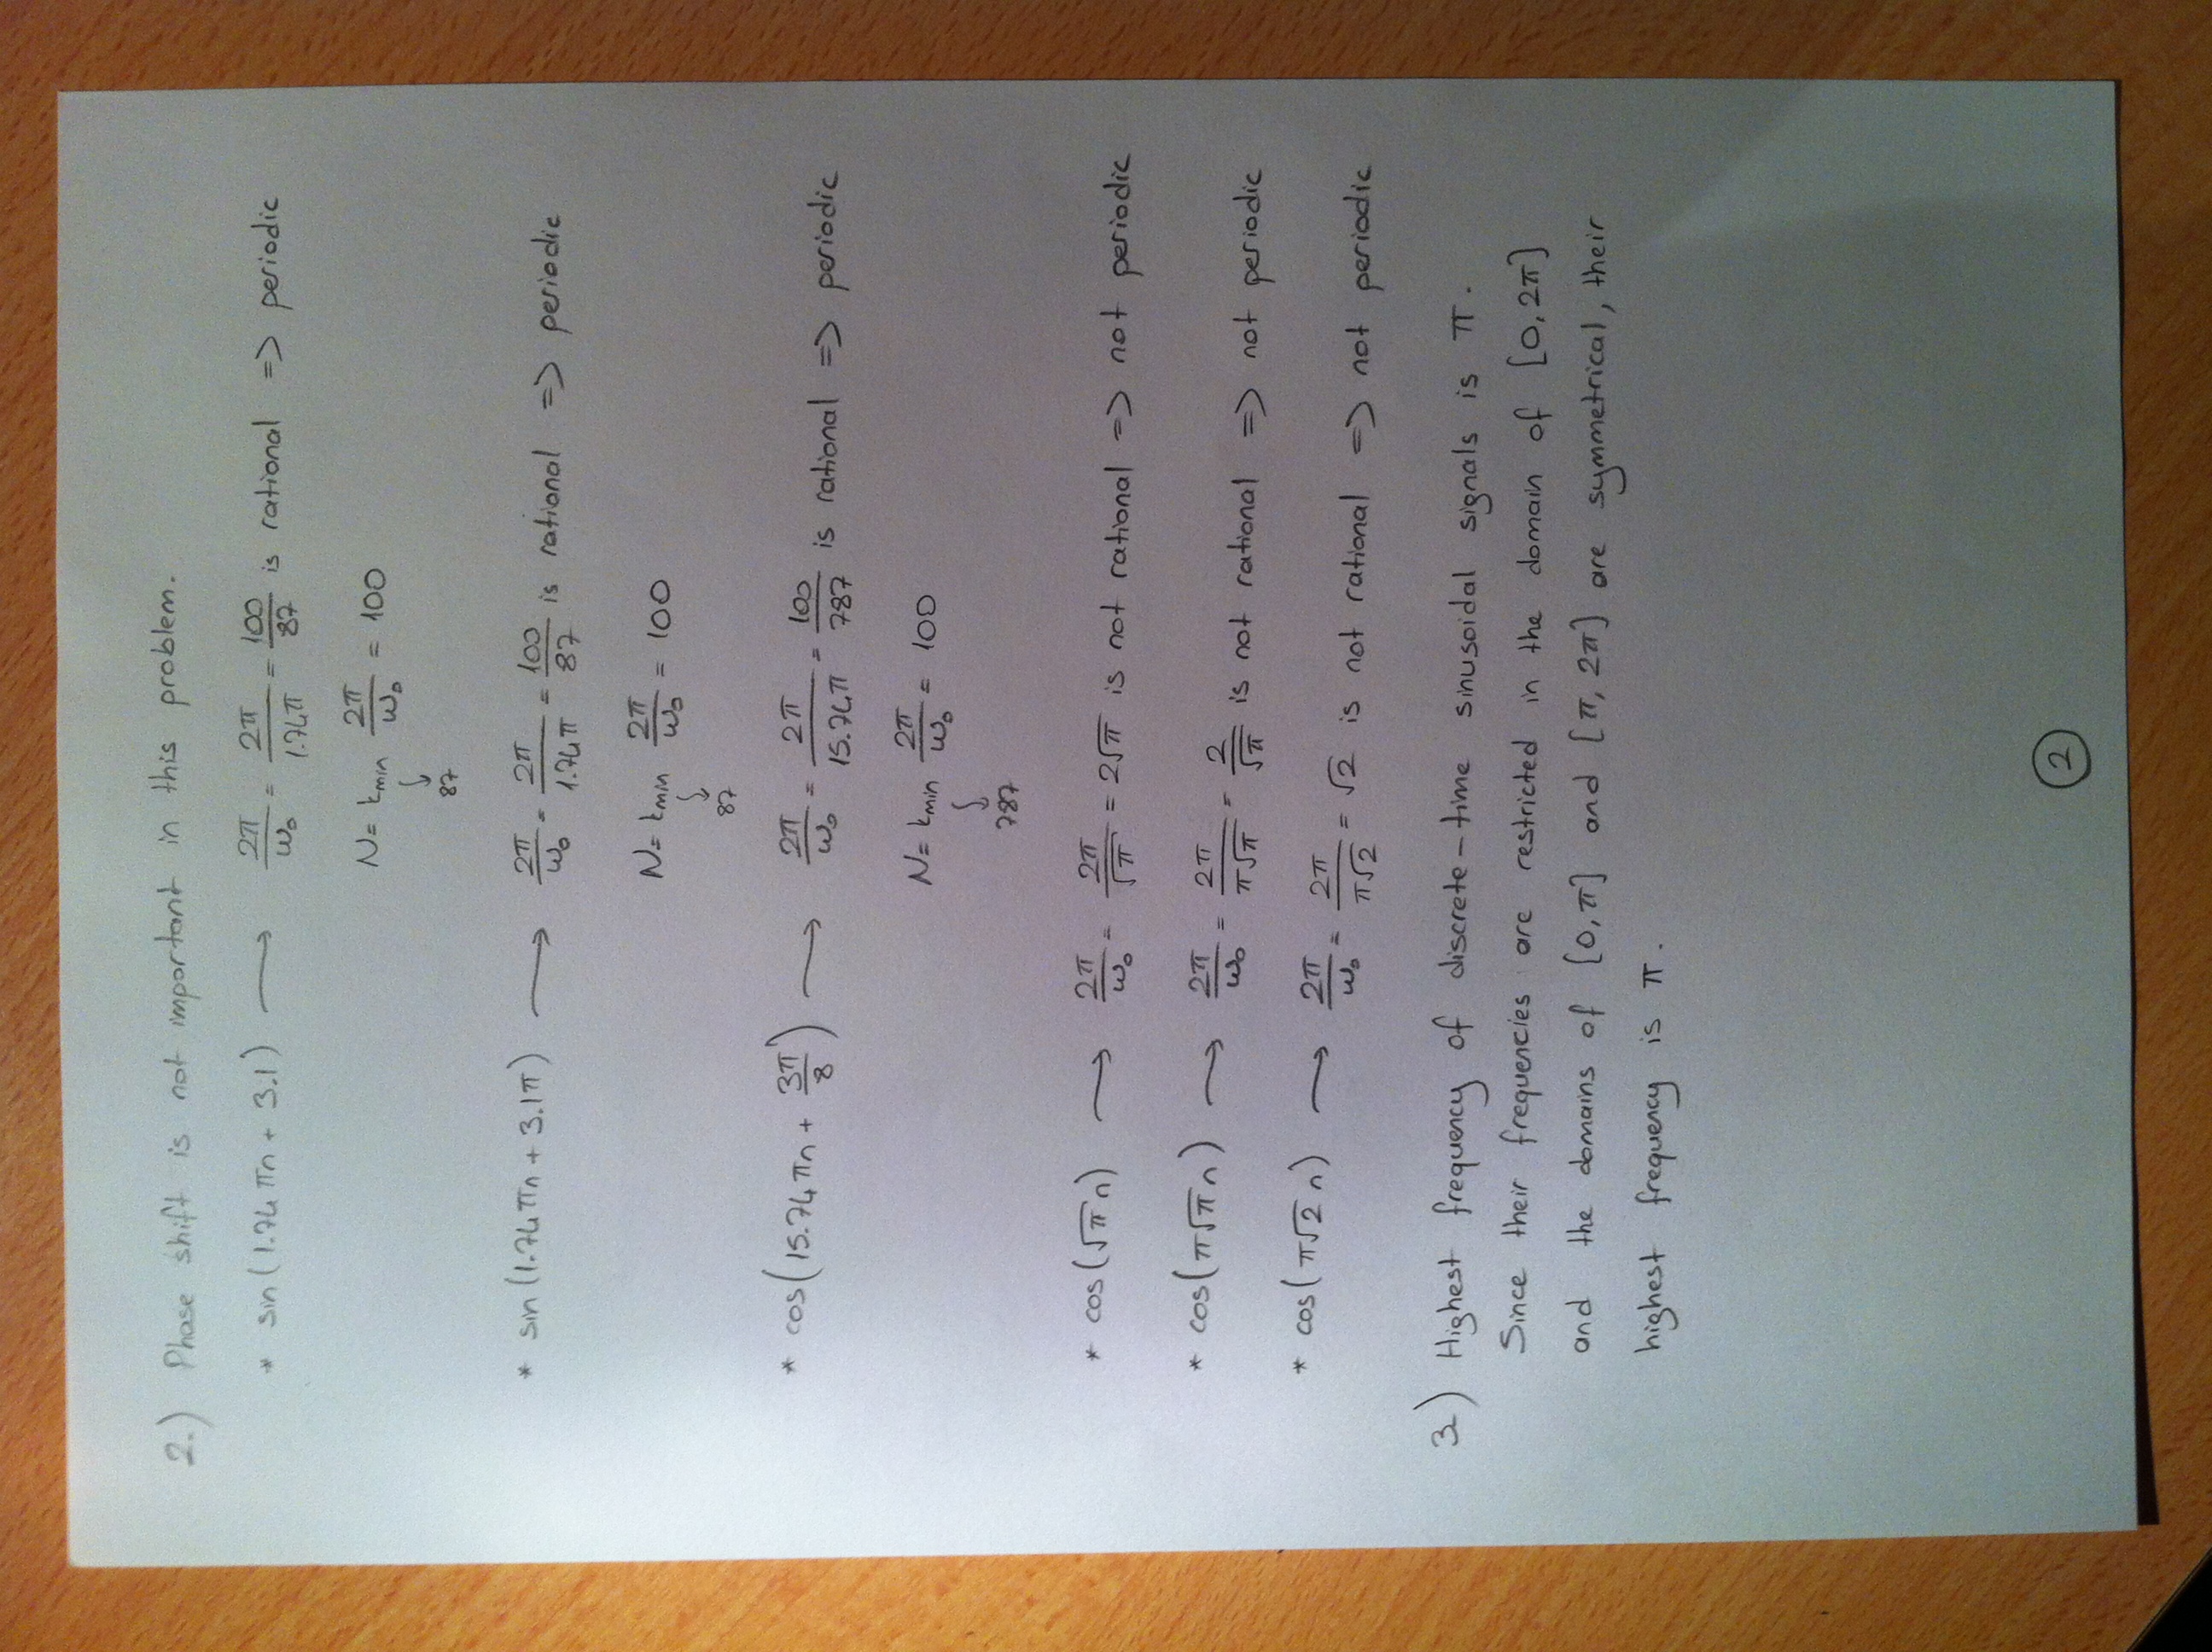 2.) Phase shift is not important in this problem.
* sin(1.74πn + 3.1) ⟶ 2π/ω₀ = 2π/1.74π = 100/87 is rational => periodic
N = kmin 2π/ω₀ = 100
87
* sin(1.74πn + 3.1π) ⟶ 2π/ω₀ = 2π/1.74π = 100/87 is rational => periodic
N = kmin 2π/ω₀ = 100
87
* cos(15.74πn + 3π/8) ⟶ 2π/ω₀ = 2π/15.74π = 100/787 is rational => periodic
N = kmin 2π/ω₀ = 100
787
* cos(√π n) ⟶ 2π/ω₀ = 2π/√π = 2√π is not rational => not periodic
* cos(π√π n) ⟶ 2π/ω₀ = 2π/π√π = 2/√π is not rational => not periodic
* cos(π√2 n) ⟶ 2π/ω₀ = 2π/π√2 = √2 is not rational => not periodic
3) Highest frequency of discrete-time sinusoidal signals is π.
Since their frequencies are restricted in the domain of [0, 2π]
and the domains of [0, π] and [π, 2π] are symmetrical, their
highest frequency is π.
2